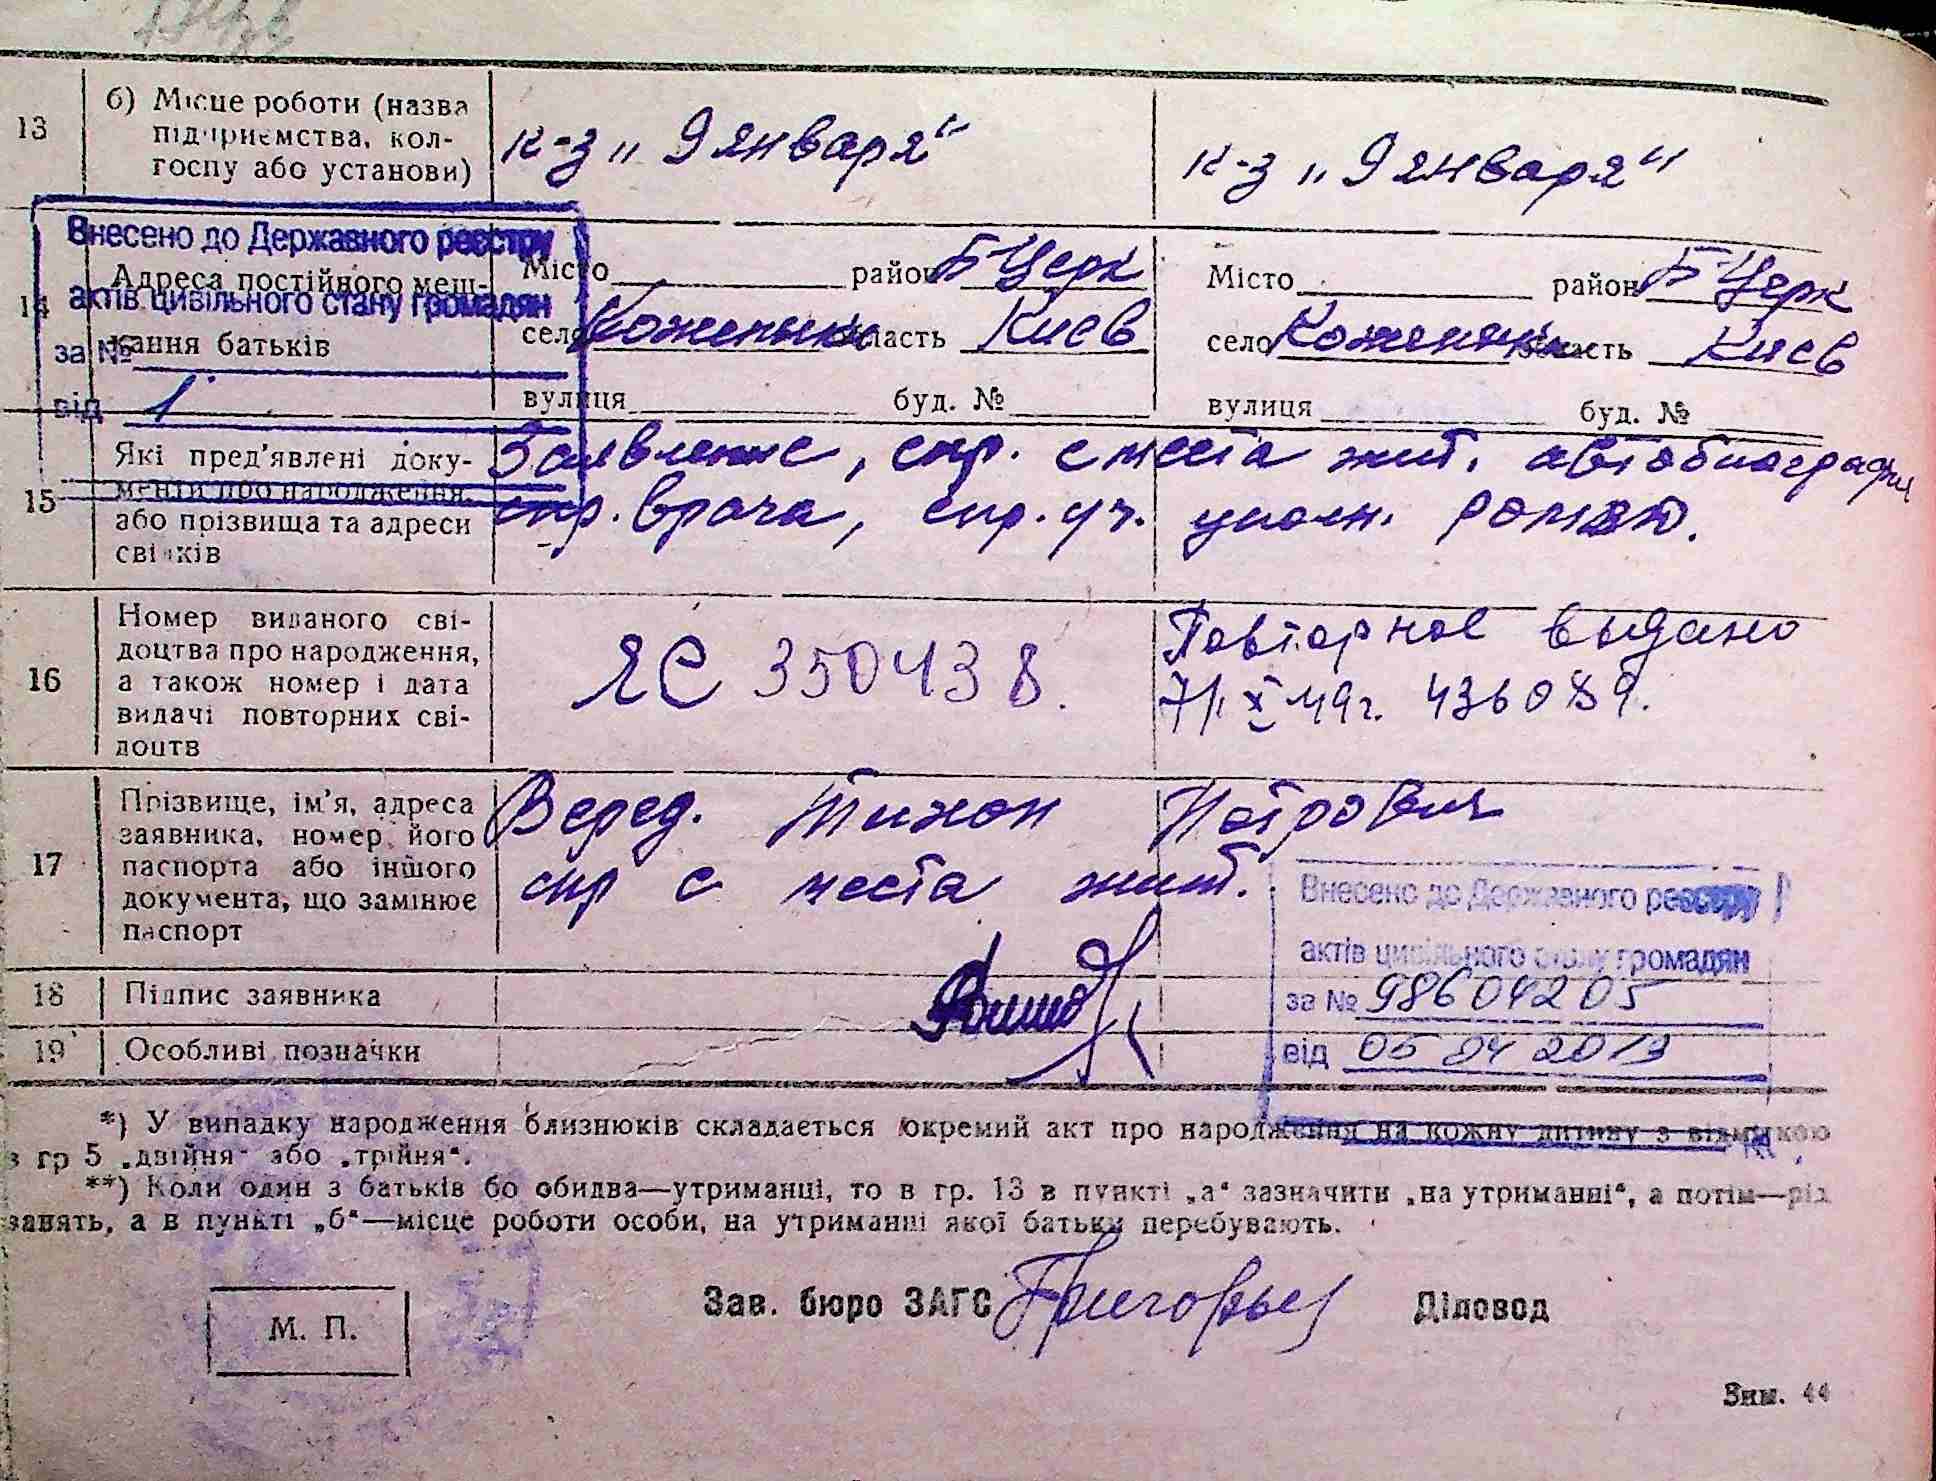 13 б) Місце роботи (назва підприємства, колгоспу або установи)
к-з „9 января“ к-з „9 января“
Внесено до Державного реєстру
актів цивільного стану громадян
за №
від 1
14 Адреса постійного меш-
кання батьків
Місто район Б Церк Місто район Б Церк
село Коженики область Киев село Коженики область Киев
вулиця буд. № вулиця буд. №
15 Які пред'явлені доку-
менти про народження,
або прізвища та адреси
свідків
Заявление, спр. с места жит. автобиография
спр. врача, спр. уч. уполн.
16 Номер виданого сві-
доцтва про народження,
а також номер і дата
видачі повторних сві-
доцтв
ЯС 350438.
Повторное выдано
7/. X 49г. 436089.
17 Прізвище, ім'я, адреса
заявника, номер його
паспорта або іншого
документа, що замінює
паспорт
Веред. Тихон Петрович
спр с места жит.
Внесено до Державного реєстру
актів цивільного стану громадян
за № 98604205
від 05 04 2013
18 Підпис заявника
19 Особливі позначки
*) У випадку народження близнюків складається окремий акт про народження на кожну дитину з відміткою
в гр 5 „двійня“ або „трійня“.
**) Коли один з батьків бо обидва—утриманці, то в гр. 13 в пункті „а“ зазначити „на утриманні“, а потім—рід
занять, а в пункті „б“—місце роботи особи, на утриманні якої батьки перебувають.
М. П.
Зав. бюро ЗАГС Діловод
Зим. 44